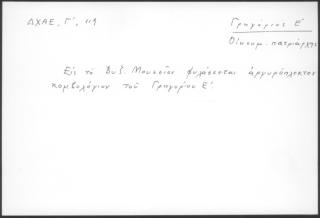 ΔΧΑΕ, Γ', 119
Γρηγόριος Ε'
Οἰκουμ. πατριάρχης
Εἰς τὸ Βυζ. Μουσεῖον φυλάσσεται ἀργυρόπλεκτον
κομβολόγιον τοῦ Γρηγορίου Ε'